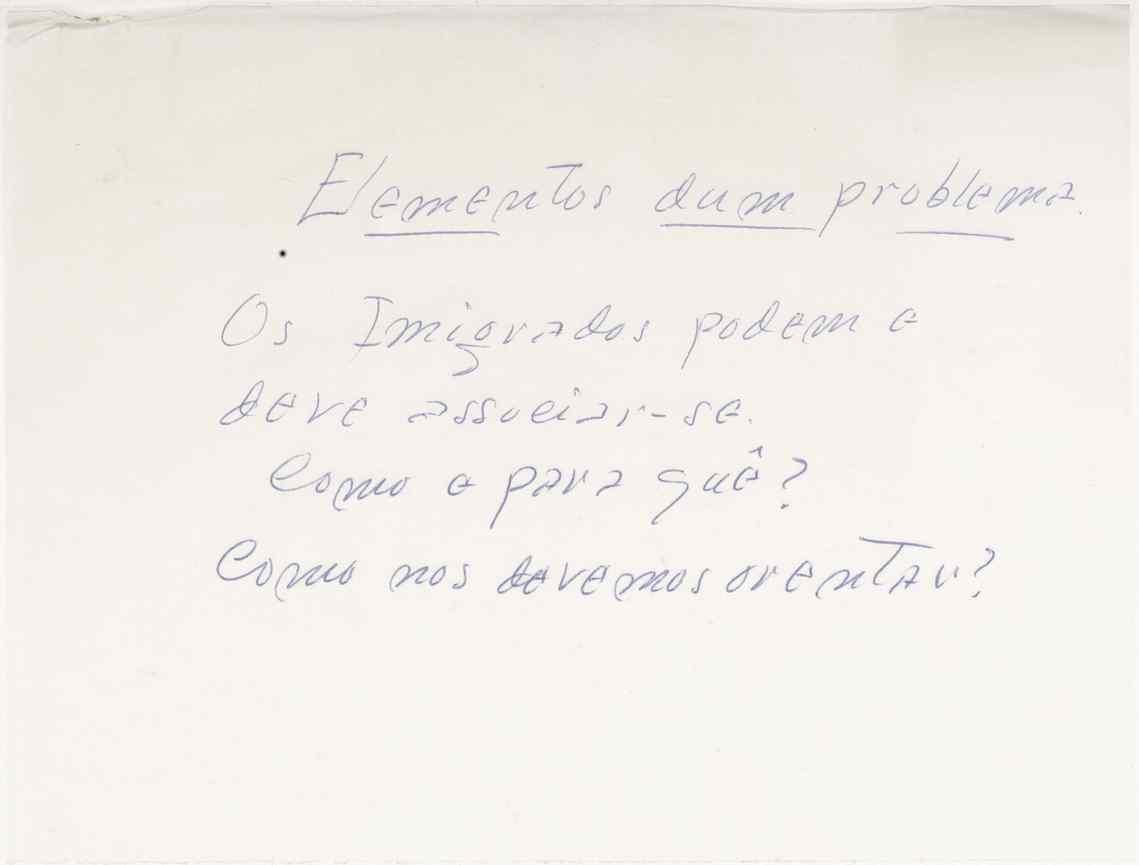 Elementos dum problema.
Os Imigrados podem e
deve associar-se.
Como e para quê?
Como nos devemos orentar?